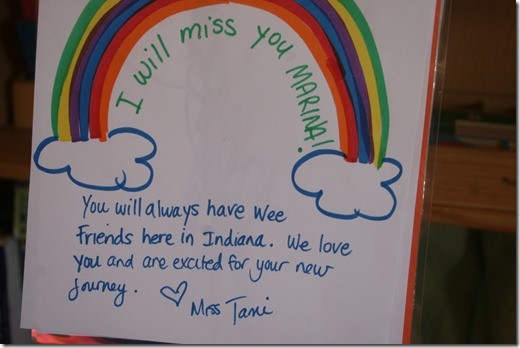 I will miss you MARINA!
You will always have Wee
Friends here in Indiana. We love
you and are excited for your new
Journey. ♡ Mrs Tami